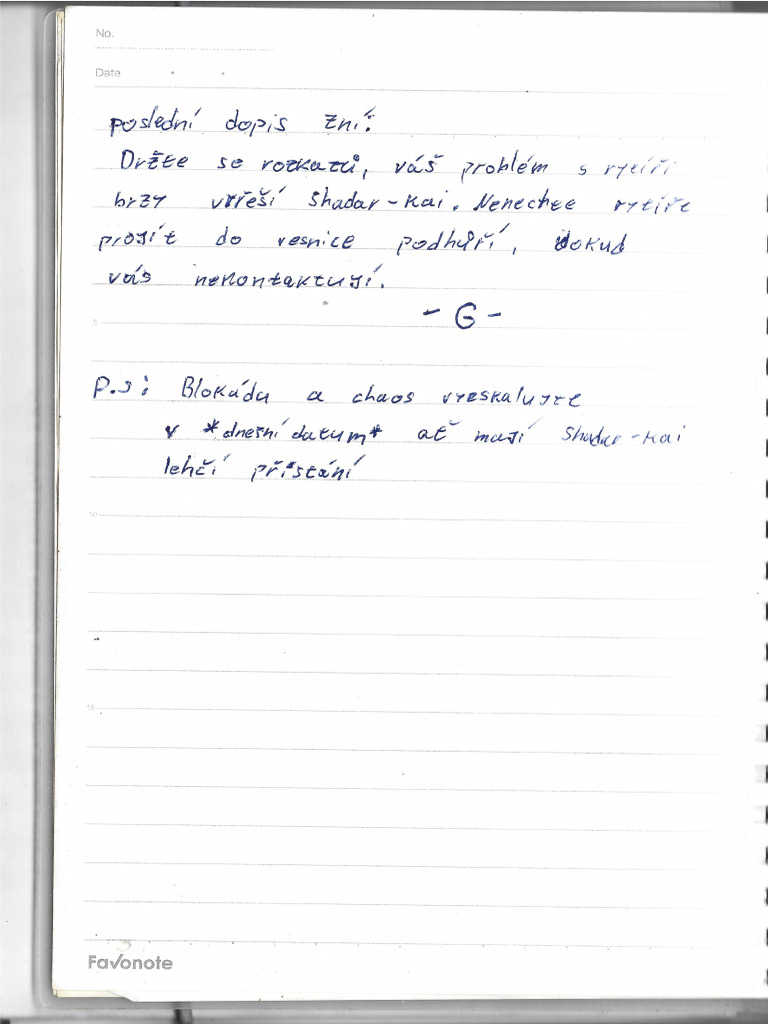 No.
Date
poslední dopis zní:
Držte se rozkazů, váš problém s rytíři
brzy vyřeší shadar-kai. Nenechce rytíře
projít do vesnice podhůří, dokud
vás nekontaktují.
- G -
P.S: Blokádu a chaos vyeskalujte
v *dnešní datum* ať mají shadar-kai
lehčí přistání
5
10
15
Favonote